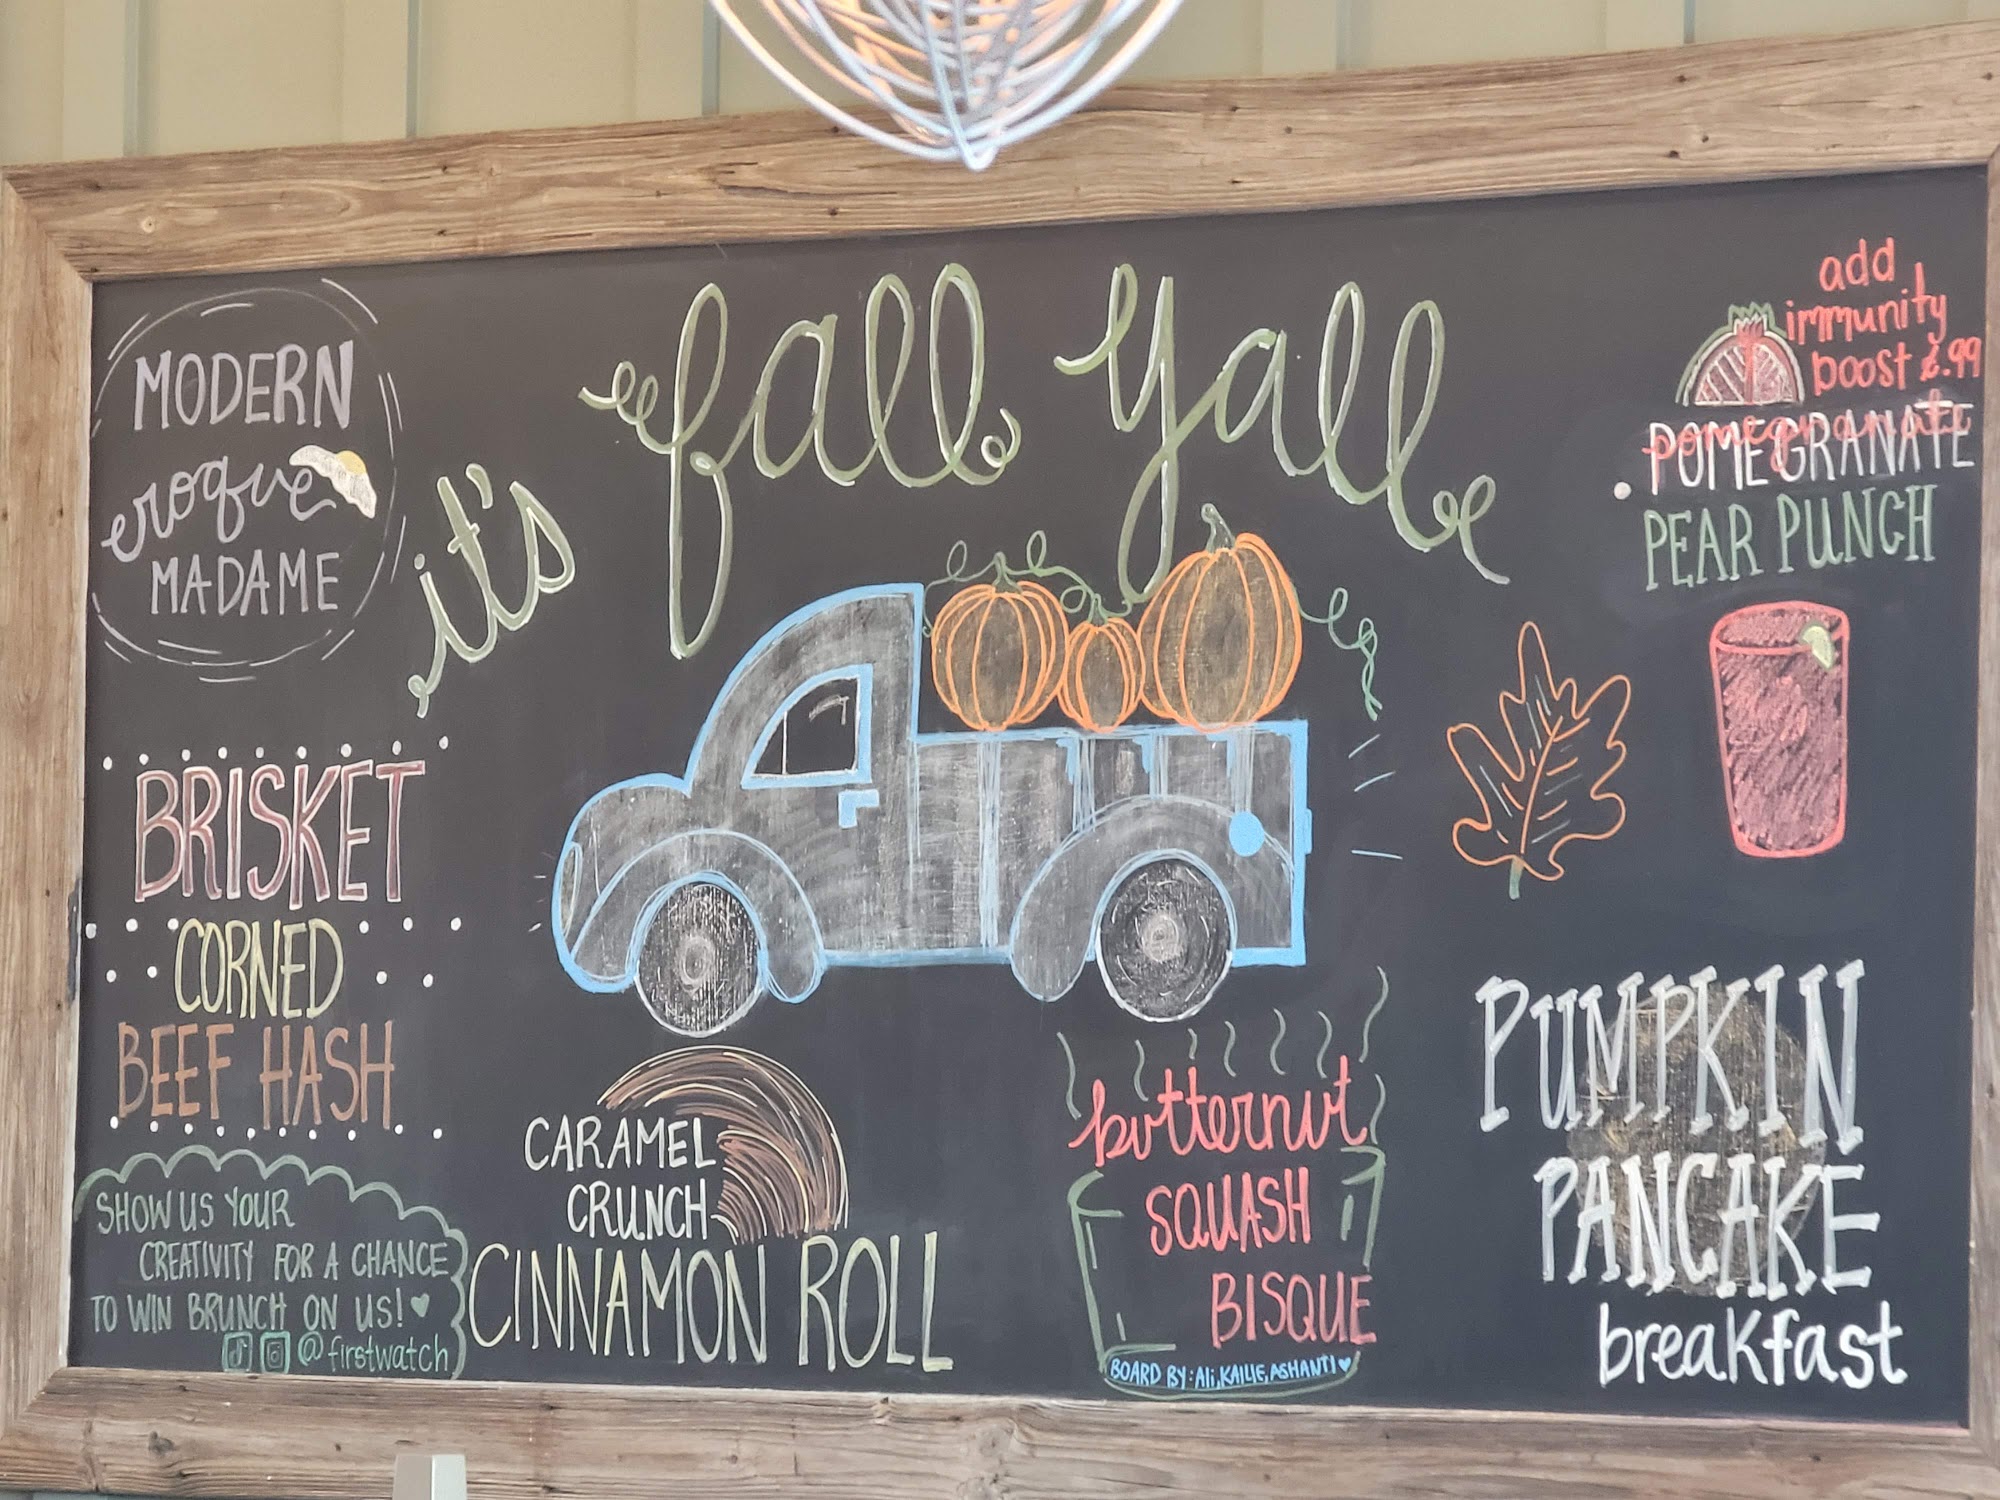 it's fall y'all
MODERN
croque
MADAME
BRISKET
CORNED
BEEF HASH
SHOW US YOUR
CREATIVITY FOR A CHANCE
TO WIN BRUNCH ON US!
@firstwatch
CARAMEL
CRUNCH
CINNAMON ROLL
butternut
SQUASH
BISQUE
BOARD BY: Ali, KAILIE, ASHANTI
add
immunity
boost
POMEGRANATE
PEAR PUNCH
PUMPKIN
PANCAKE
breakfast